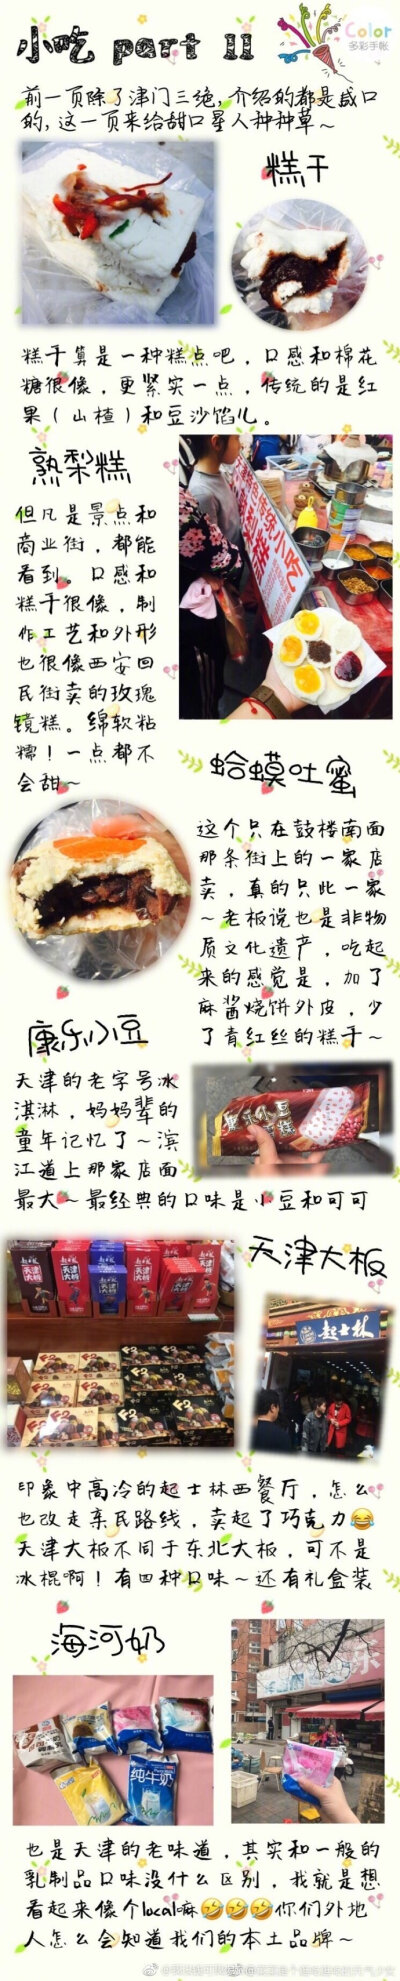 小吃 part 11
Color
多彩手帐
前一页除了津门三绝,介绍的都是咸口
的,这一页来给甜口星人种种草~
糕干
糕干算是一种糕点吧,口感和棉花
糖很像,更紧实一点,传统的是红
果(山楂)和豆沙馅儿。
熟梨糕
但凡是景点和
商业街,都能
看到。口感和
糕干很像,制
作工艺和外形
也很像西安回
民街卖的玫瑰
镜糕。绵软粘
糯!一点都不
会甜~
传统小吃
蛤蟆吐蜜
这个只在鼓楼南面
那条街上的一家店
卖,真的只此一家
~老板说也是非物
质文化遗产,吃起
来的感觉是,加了
麻酱烧饼外皮,少
了青红丝的糕干~
康乐小豆
天津的老字号冰
淇淋,妈妈辈的
童年记忆了~滨
江道上那家店面
最大~最经典的口味是小豆和可可
天津大板
天津大板
起士林
印象中高冷的起士林西餐厅,怎么
也改走亲民路线,卖起了巧克力😂
天津大板不同于东北大板,可不是
冰棍啊!有四种口味~还有礼盒装
海河奶
纯牛奶
也是天津的老味道,其实和一般的
乳制品口味没什么区别,我就是想
看起来像个local嘛🤣🤣🤣你们外地
人怎么会知道我们的本土品牌~